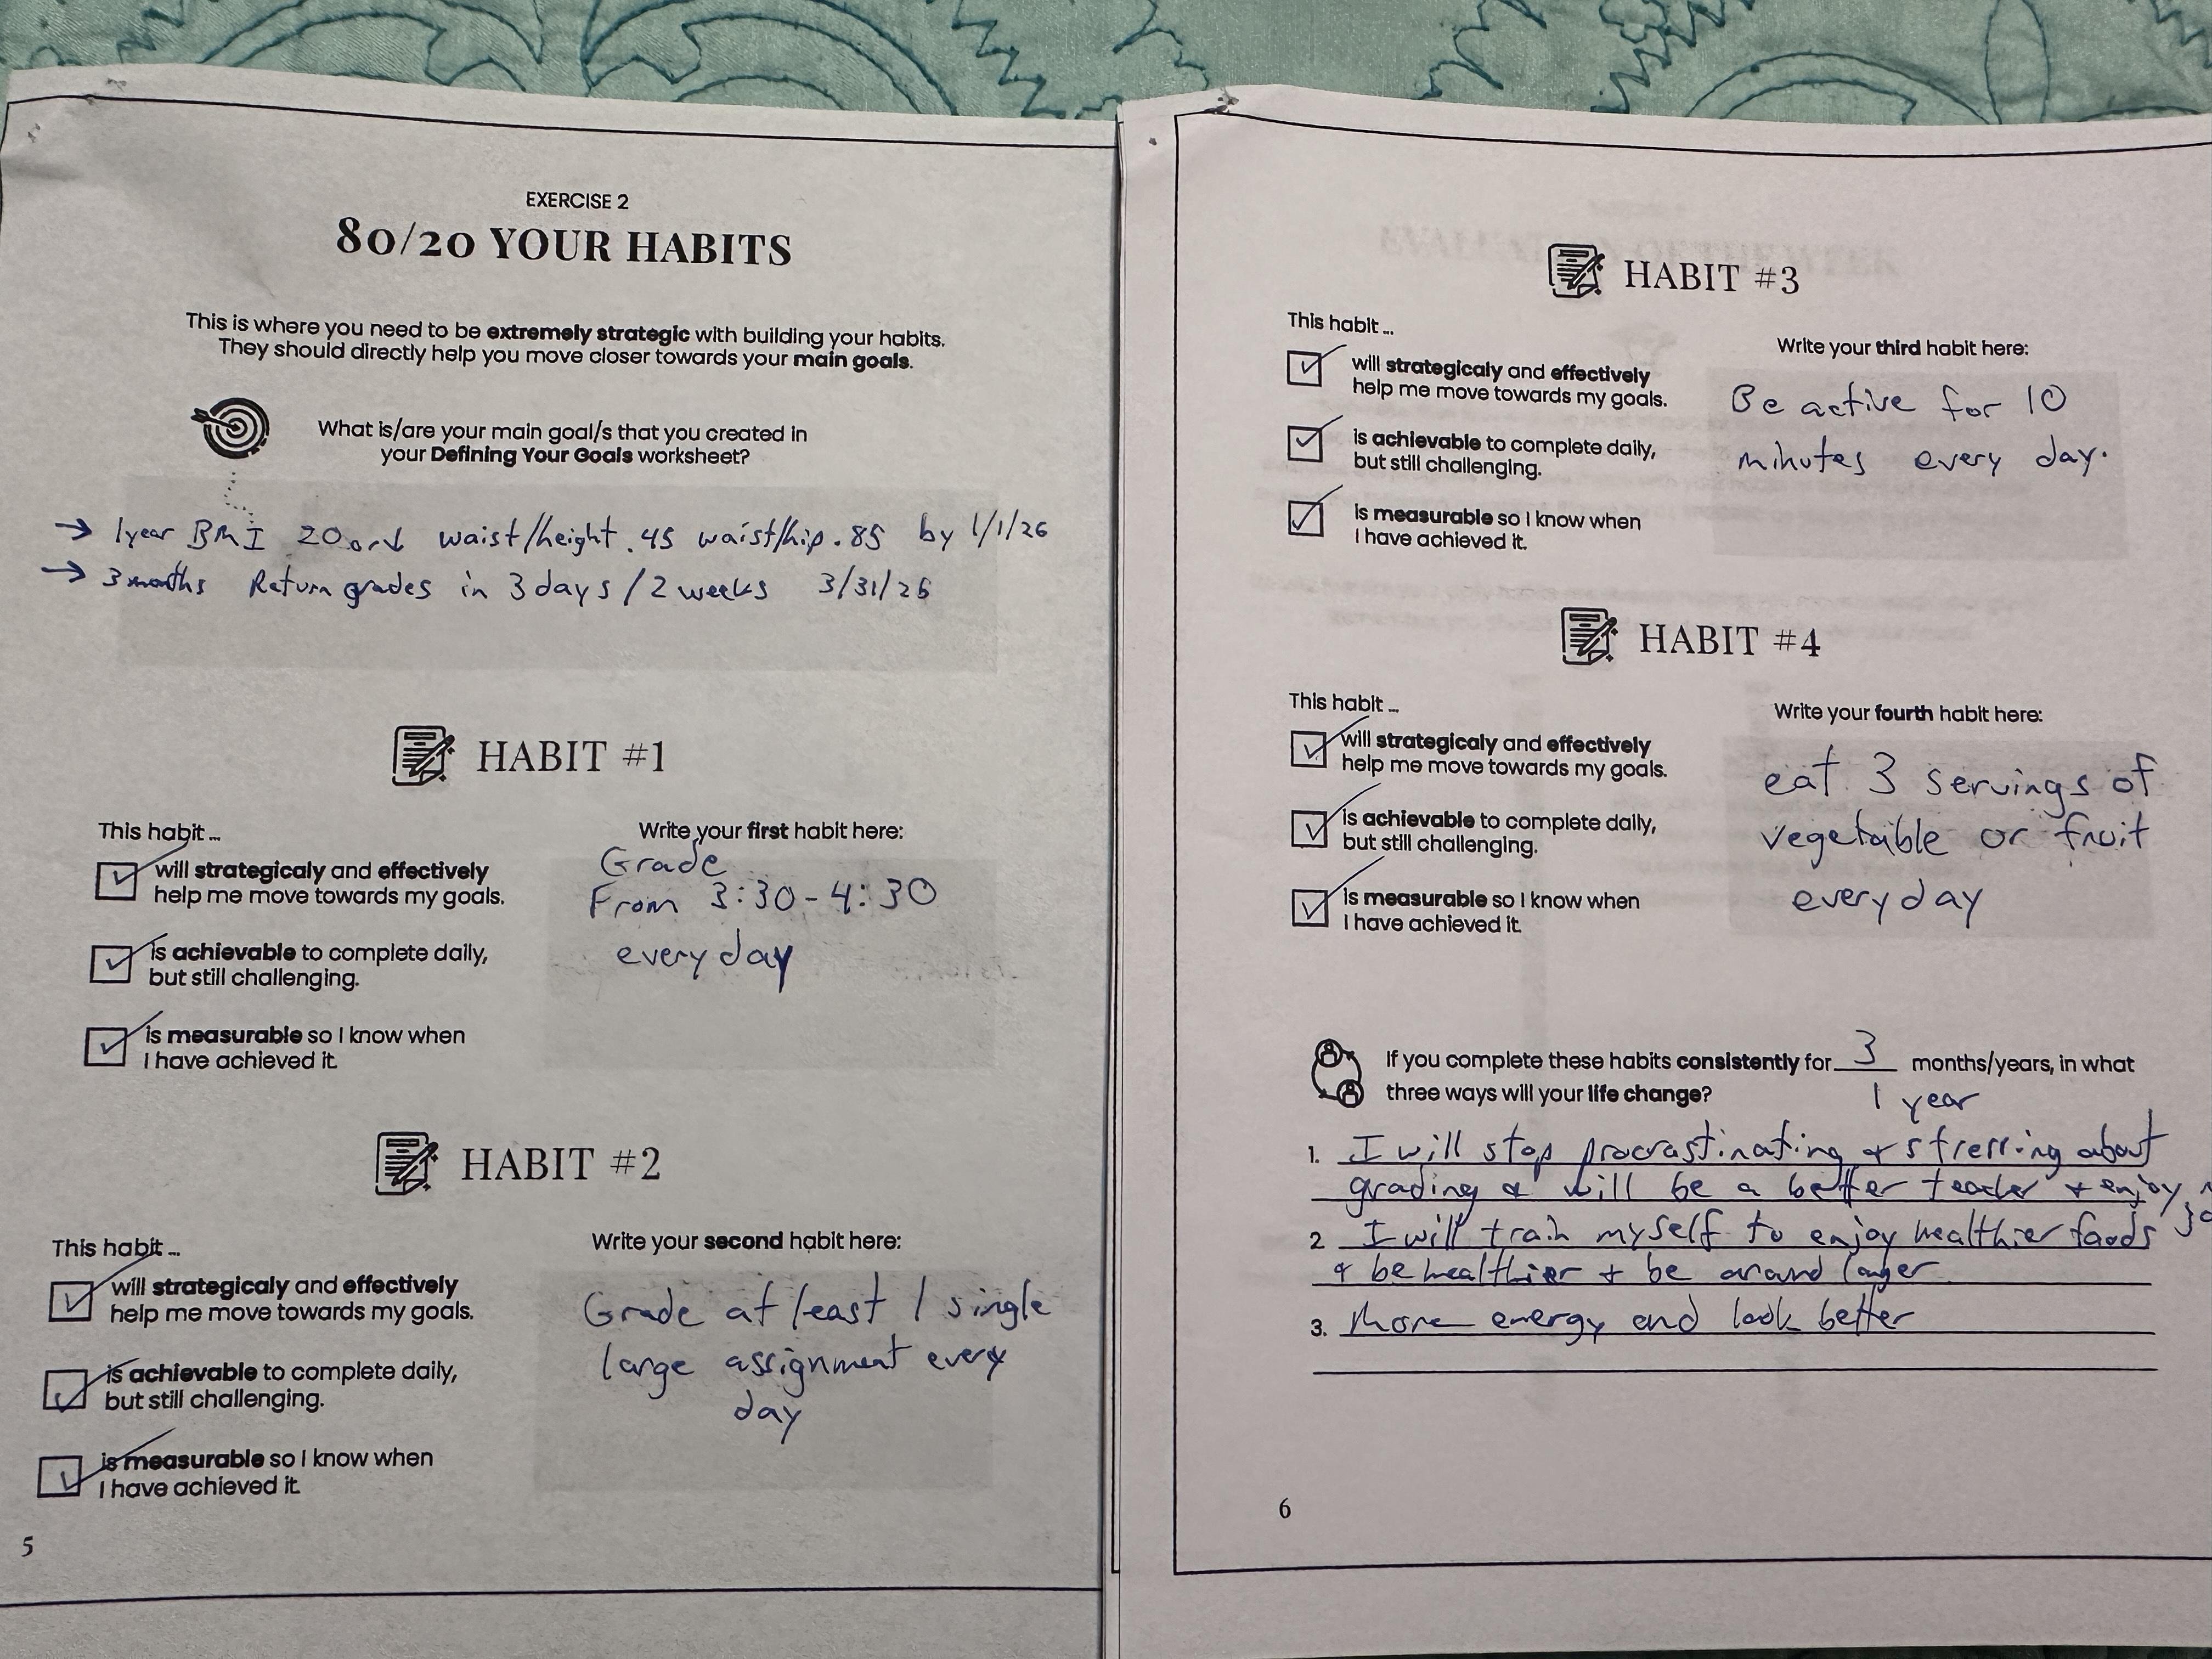 EXERCISE 2
80/20 YOUR HABITS
This is where you need to be extremely strategic with building your habits.
They should directly help you move closer towards your main goals.
What is/are your main goal/s that you created in
your Defining Your Goals worksheet?
→ 1year BMI 20 or ↓ waist/height .45 waist/hip .85 by 1/1/26
→ 3 months Return grades in 3 days / 2 weeks 3/31/26
HABIT #1
This habit ...
will strategicaly and effectively
help me move towards my goals.
is achievable to complete daily,
but still challenging.
is measurable so I know when
I have achieved it.
Write your first habit here:
Grade
From 3:30-4:30
every day
HABIT #2
This habit ...
will strategicaly and effectively
help me move towards my goals.
is achievable to complete daily,
but still challenging.
is measurable so I know when
I have achieved it.
Write your second habit here:
Grade at least 1 single
large assignment every
day
5
HABIT #3
This habit ...
will strategicaly and effectively
help me move towards my goals.
is achievable to complete daily,
but still challenging.
is measurable so I know when
I have achieved it.
Write your third habit here:
Be active for 10
minutes every day.
HABIT #4
This habit ...
will strategicaly and effectively
help me move towards my goals.
is achievable to complete daily,
but still challenging.
is measurable so I know when
I have achieved it.
Write your fourth habit here:
eat 3 servings of
vegetable or fruit
every day
If you complete these habits consistently for 3 months/years, in what
three ways will your life change?
1 year
1. I will stop procrastinating & stressing about
grading & will be a better teacher & enjoy
2 I will train myself to enjoy healthier foods
& be healthier & be around longer
3. More energy and look better
6